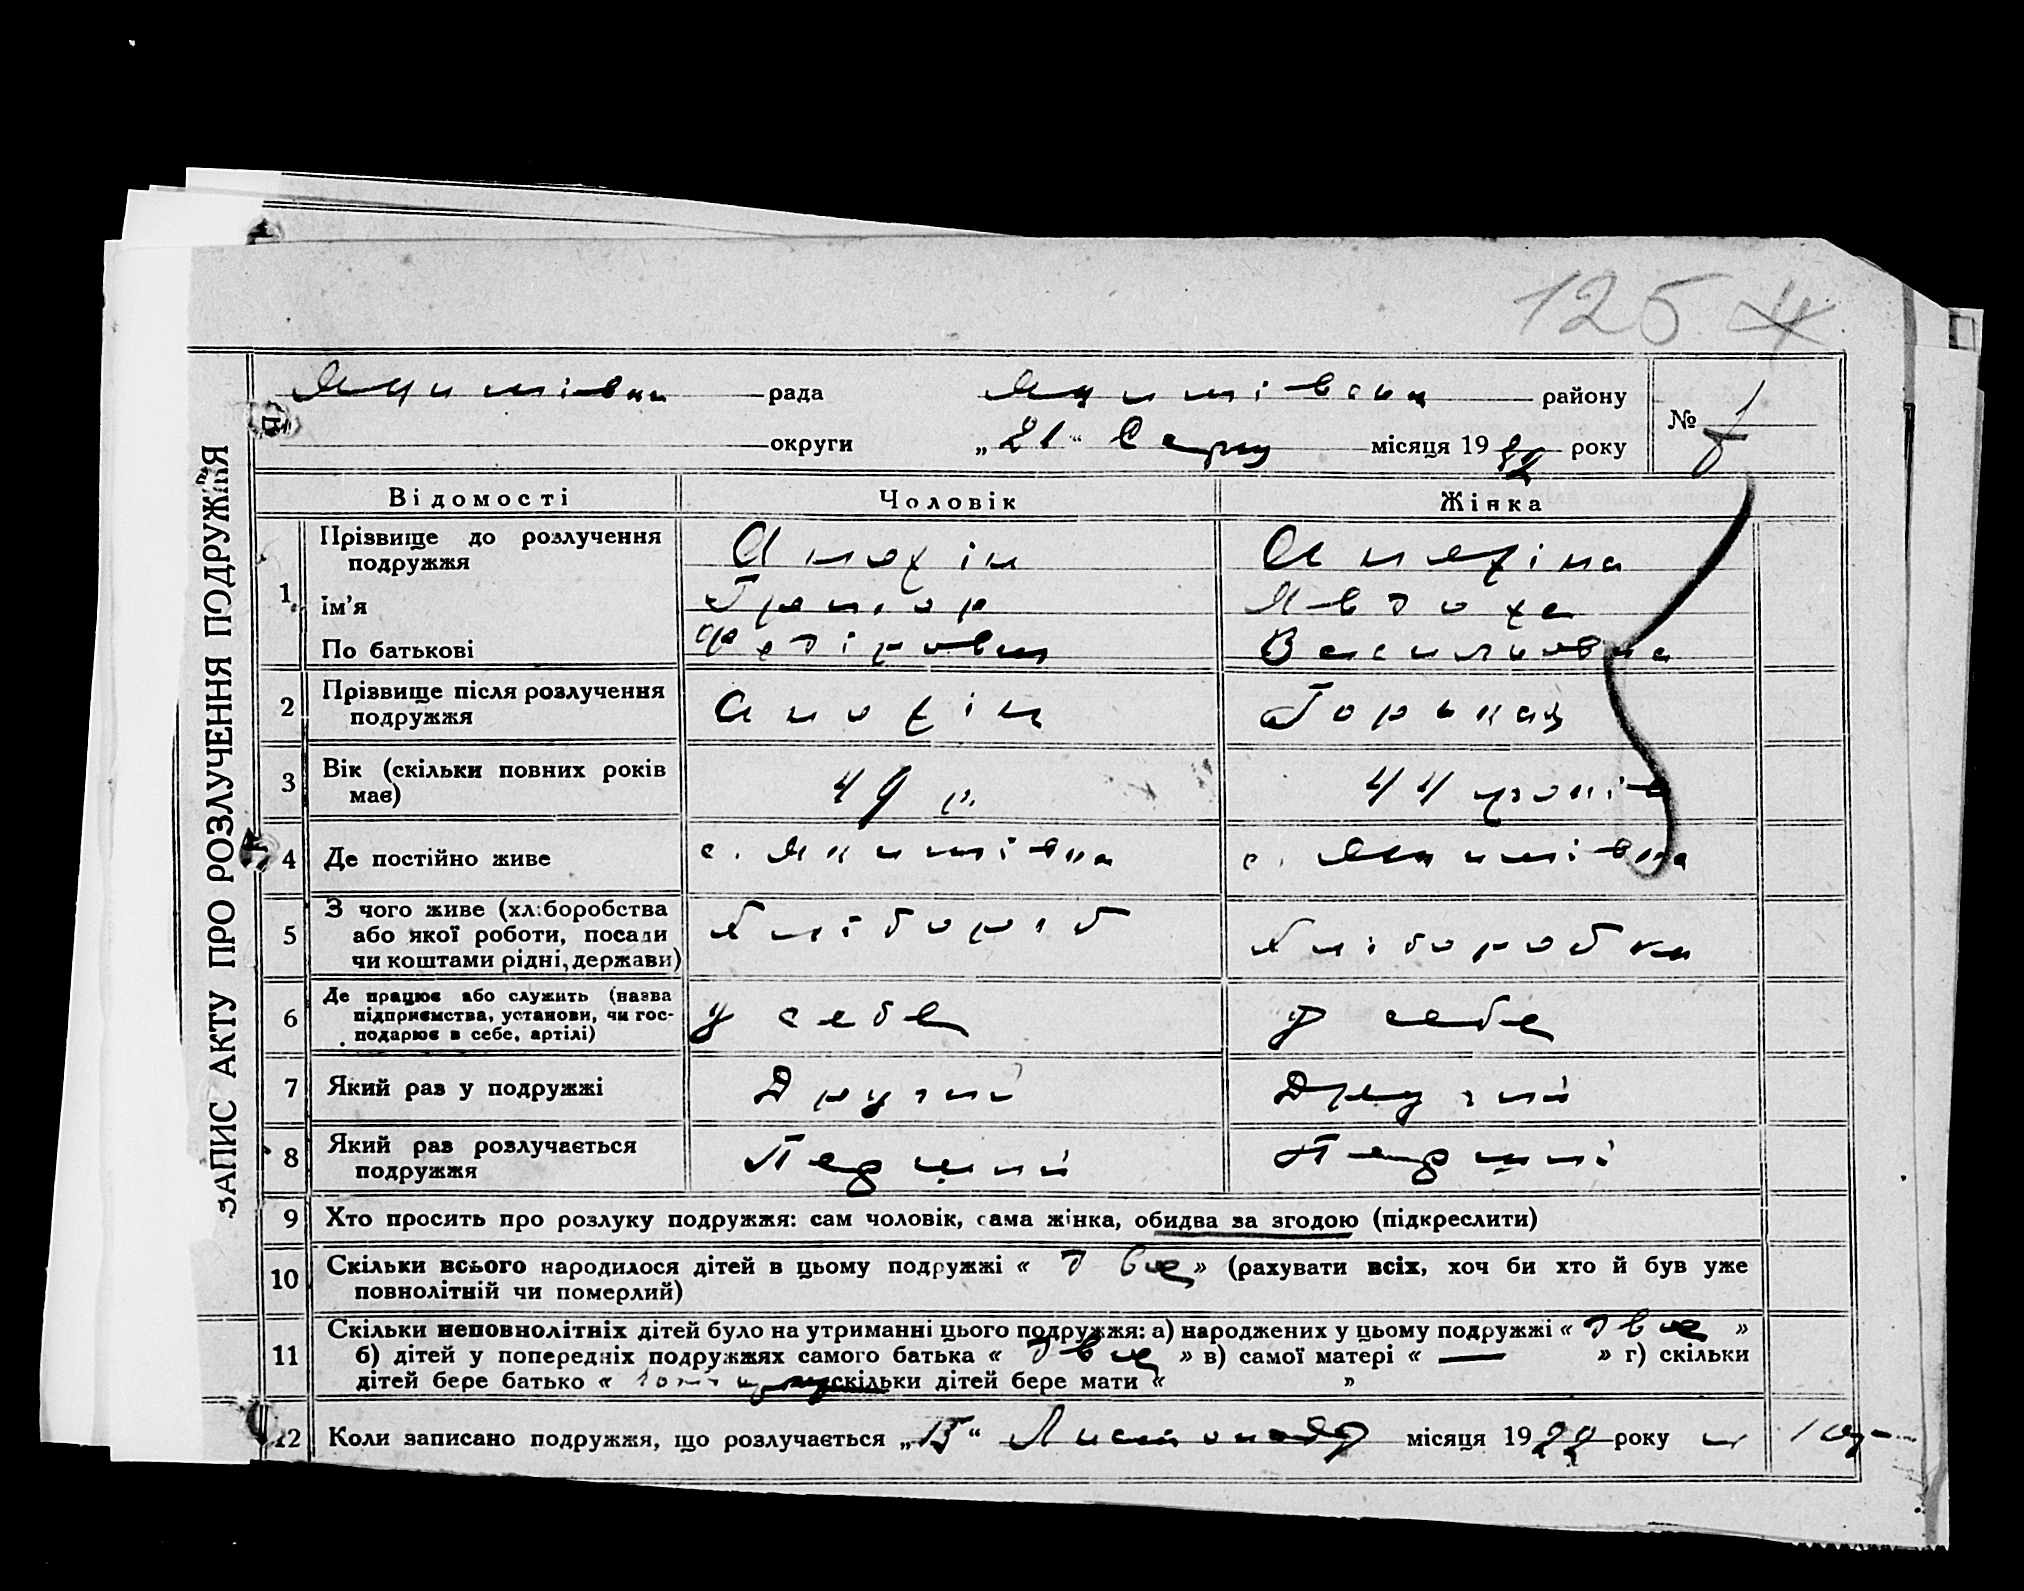 125 4
Якимівська рада Якимівського району №
округи „21“ Серпня місяця 19 року
ЗАПИС АКТУ ПРО РОЗЛУЧЕННЯ ПОДРУЖЖЯ
Відомості Чоловік Жінка
1. Прізвище до розлучення подружжя Анохін Анохіна
Ім'я Григор Явдоха
По батькові Василиовна
2 Прізвище після розлучення подружжя Анохін Горькая
3 Вік (скільки повних років має) 49 р. 44 років
4 Де постійно живе с. Якимівка с. Якимівка
5 З чого живе (хліборобства або якої роботи, посади чи коштами рідні, держави) Хлібороб Хліборобка
6 Де працює або служить (назва підприємства, установи, чи господарює в себе, артілі) у себе у себе
7 Який раз у подружжі Другий Другий
8 Який раз розлучається подружжя Перший Перший
9 Хто просить про розлуку подружжя: сам чоловік, сама жінка, обидва за згодою (підкреслити)
10 Скільки всього народилося дітей в цьому подружжі « двое » (рахувати всіх, хоч би хто й був уже
повнолітній чи померлий)
11 Скільки неповнолітніх дітей було на утриманні цього подружжя: а) народжених у цьому подружжі « двое »
б) дітей у попередніх подружжях самого батька « двое » в) самої матері « — » г) скільки
дітей бере батько « скільки дітей бере мати « »
12 Коли записано подружжя, що розлучається „13“ Листопада місяця 1922 року